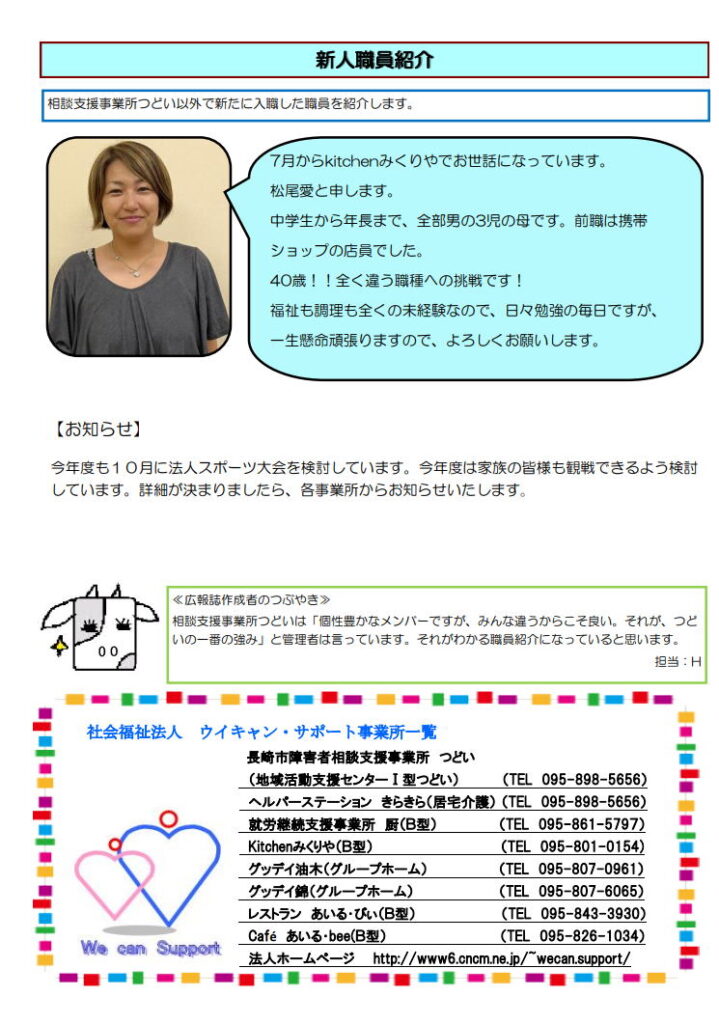 新人職員紹介
相談支援事業所つどい以外で新たに入職した職員を紹介します。
7月からkitchenみくりやでお世話になっています。
松尾愛と申します。
中学生から年長まで、全部男の3児の母です。前職は携帯
ショップの店員でした。
40歳！！全く違う職種への挑戦です！
福祉も調理も全くの未経験なので、日々勉強の毎日ですが、
一生懸命頑張りますので、よろしくお願いします。
【お知らせ】
今年度も１０月に法人スポーツ大会を検討しています。今年度は家族の皆様も観戦できるよう検討
しています。詳細が決まりましたら、各事業所からお知らせいたします。
≪広報誌作成者のつぶやき≫
相談支援事業所つどいは「個性豊かなメンバーですが、みんな違うからこそ良い。それが、つど
いの一番の強み」と管理者は言っています。それがわかる職員紹介になっていると思います。
担当：H
社会福祉法人　ウイキャン・サポート事業所一覧
長崎市障害者相談支援事業所　つどい
（地域活動支援センターⅠ型つどい）　（TEL　095-898-5656）
ヘルパーステーション　きらきら（居宅介護）（TEL　095-898-5656）
就労継続支援事業所　厨（B型）　（TEL　095-861-5797）
Kitchenみくりや（B型）　（TEL　095-801-0154）
グッデイ油木（グループホーム）　（TEL　095-807-0961）
グッデイ錦（グループホーム）　（TEL　095-807-6065）
レストラン　あいる・びぃ（B型）　（TEL　095-843-3930）
Café　あいる・bee（B型）　（TEL　095-826-1034）
法人ホームページ　http://www6.cncm.ne.jp/~wecan.support/
We can Support